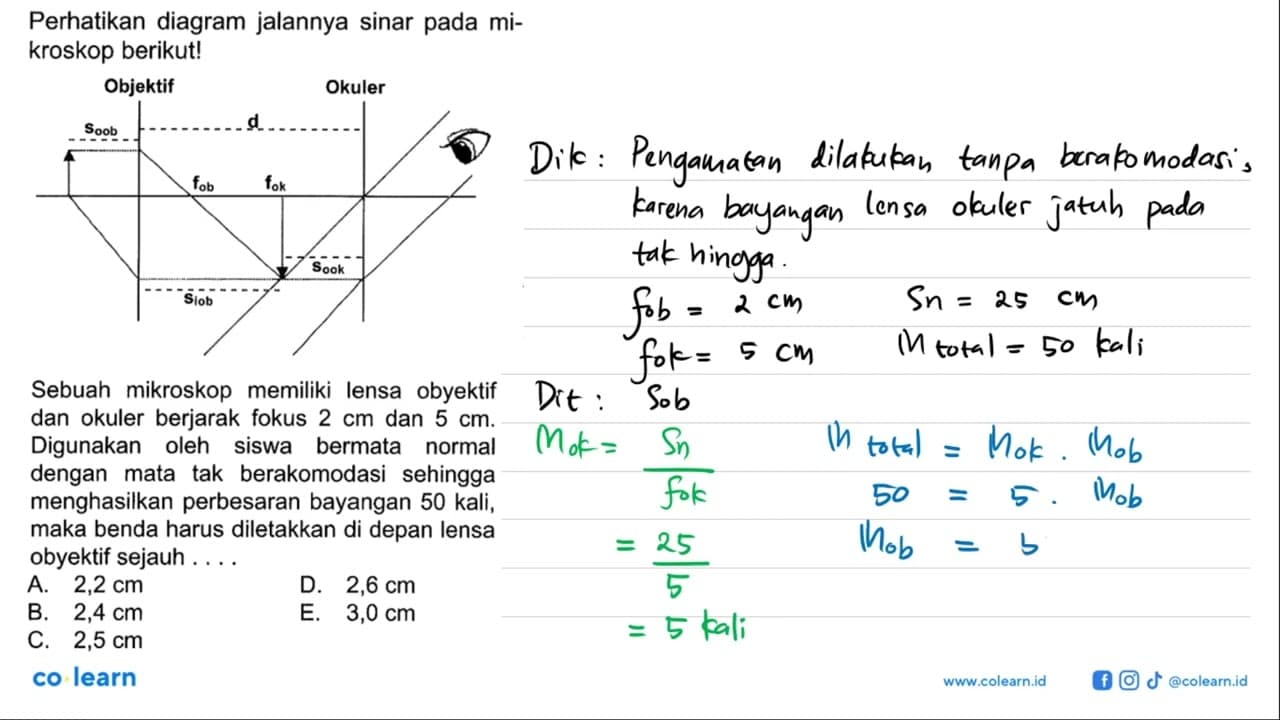 Perhatikan diagram jalannya sinar pada mi-
kroskop berikut!
Objektif Okuler
soob d
fob fok
sook
siob
Sebuah mikroskop memiliki lensa obyektif
dan okuler berjarak fokus 2 cm dan 5 cm.
Digunakan oleh siswa bermata normal
dengan mata tak berakomodasi sehingga
menghasilkan perbesaran bayangan 50 kali,
maka benda harus diletakkan di depan lensa
obyektif sejauh . . . .
A. 2,2 cm D. 2,6 cm
B. 2,4 cm E. 3,0 cm
C. 2,5 cm
Dik : Pengamatan dilakukan tanpa berakomodasi,
karena bayangan lensa okuler jatuh pada
tak hingga.
fob = 2 cm Sn = 25 cm
fok = 5 cm M total = 50 kali
Dit : Sob
Mok = Sn
fok
= 25
5
= 5 kali
M total = Mok . Mob
50 = 5 . Mob
Mob = 5
co learn
www.colearn.id @colearn.id